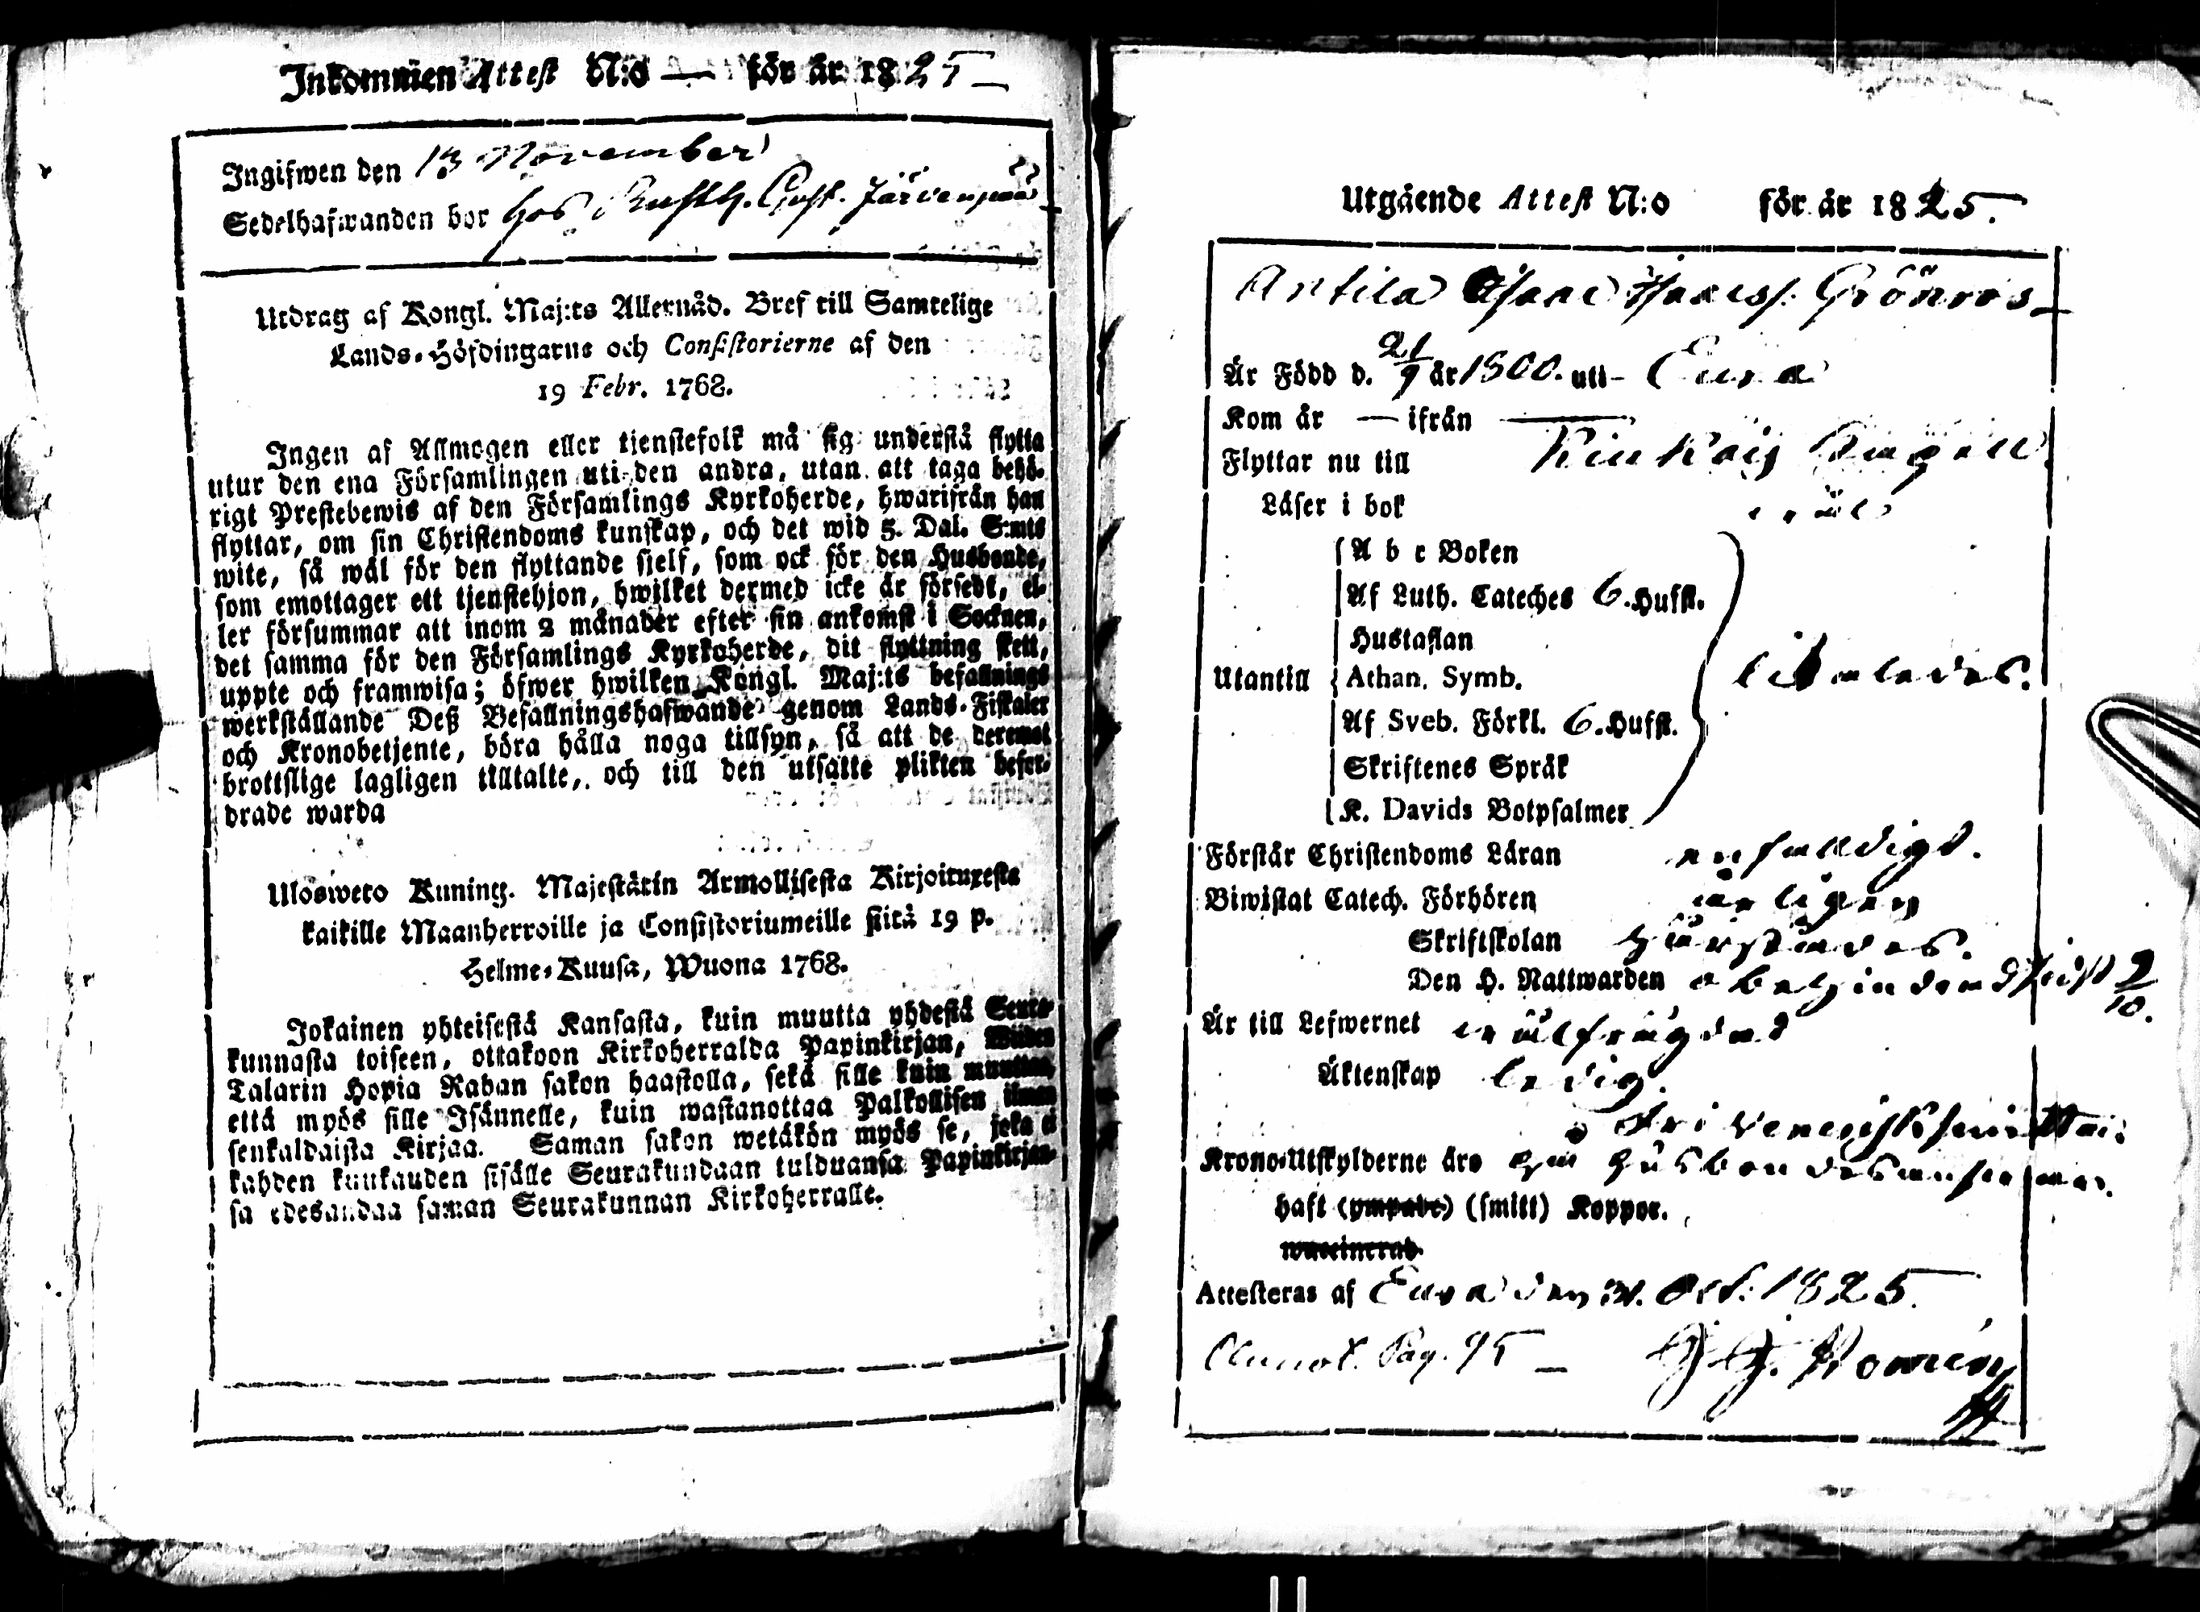 Inkommen Attest N:o — för år 1825
Ingifwen den 13 November
Sedelhafwanden bor hos Rusth. Gust. Järvenpää
Utdrag af Kongl. Maj:ts Allernåd. Bref till Samtelige
Lands-Höfdingarne och Consistorierne af den
19 Febr. 1768.
Ingen af Allmogen eller tjenstefolk må sig understå flytta
utur den ena Församlingen uti den andra, utan att taga behö-
rigt Prestebewis af den Församlings Kyrkoherde, hwarifrån han
flyttar, om sin Christendoms kunskap, och det wid 5. Dal. S:mts
wite, så wäl för den flyttande sjelf, som ock för den Husbonde,
som emottager ett tjenstehjon, hwilket dermed icke är försedt, el-
ler försummar att inom 2 månader efter sin ankomst i Socknen,
det samma för den Församlings Kyrkoherde, dit flyttning skett,
uppte och framwisa; öfwer hwilken Kongl. Maj:ts befallnings
werkställande Deß Befallningshafwande genom Lands-Fiskaler
och Kronobetjente, böra hålla noga tillsyn, så att de deremot
brottslige lagligen tilltalte, och till den utsatte plikten befor-
drade warda
Ulosweto Kuning. Majestätin Armollisesta Kirjoituxesta
kaikille Maanherroille ja Consistoriumeille siitä 19 p.
Helme-Kuusa, Wuona 1768.
Jokainen yhteisestä Kansasta, kuin muutta yhdestä Seura-
kunnasta toiseen, ottakoon Kirkoherralda Papinkirjan, Wiiden
Talarin Hopia Rahan sakon haastolla, sekä sille kuin muuttaa,
että myös sille Isännelle, kuin wastanottaa Palkollisen ilman
senkaldaista Kirjaa. Saman sakon wetäkön myös se, joka ei
kahden kuukauden sisälle Seurakundaan tulduansa Papinkirjan-
sa edesandaa saman Seurakunnan Kirkoherralle.
Utgående Attest N:o för år 1825.
Antila Isaac Isacss. Grönroos
Är Född d. 21/9 år 1800. uti Eura
Kom år — ifrån —
Flyttar nu till Kiukais Capell
Läser i bok wäl
A b c Boken
Af Luth. Cateches 6. Hufst.
Hustaflan
Utantill Athan. Symb. likaledes.
Af Sveb. Förkl. 6. Hufst.
Skriftenes Språk
K. Davids Botpsalmer
Förstår Christendoms Läran enfaldigt.
Biwistat Catech. Förhören årligen
Skriftskolan härstädes.
Den H. Nattwarden obehindrad sist 2/10.
Är till Lefwernet wälfrägdad
Äktenskap ledig.
fri venerisk smitta.
Krono-Utskylderne äro på husbondes ansvar.
haft (ympade) (smitt) Koppor.
waccinerad
Attesteras af Eura den 31. Oct: 1825.
Annot. Pag. 95 —